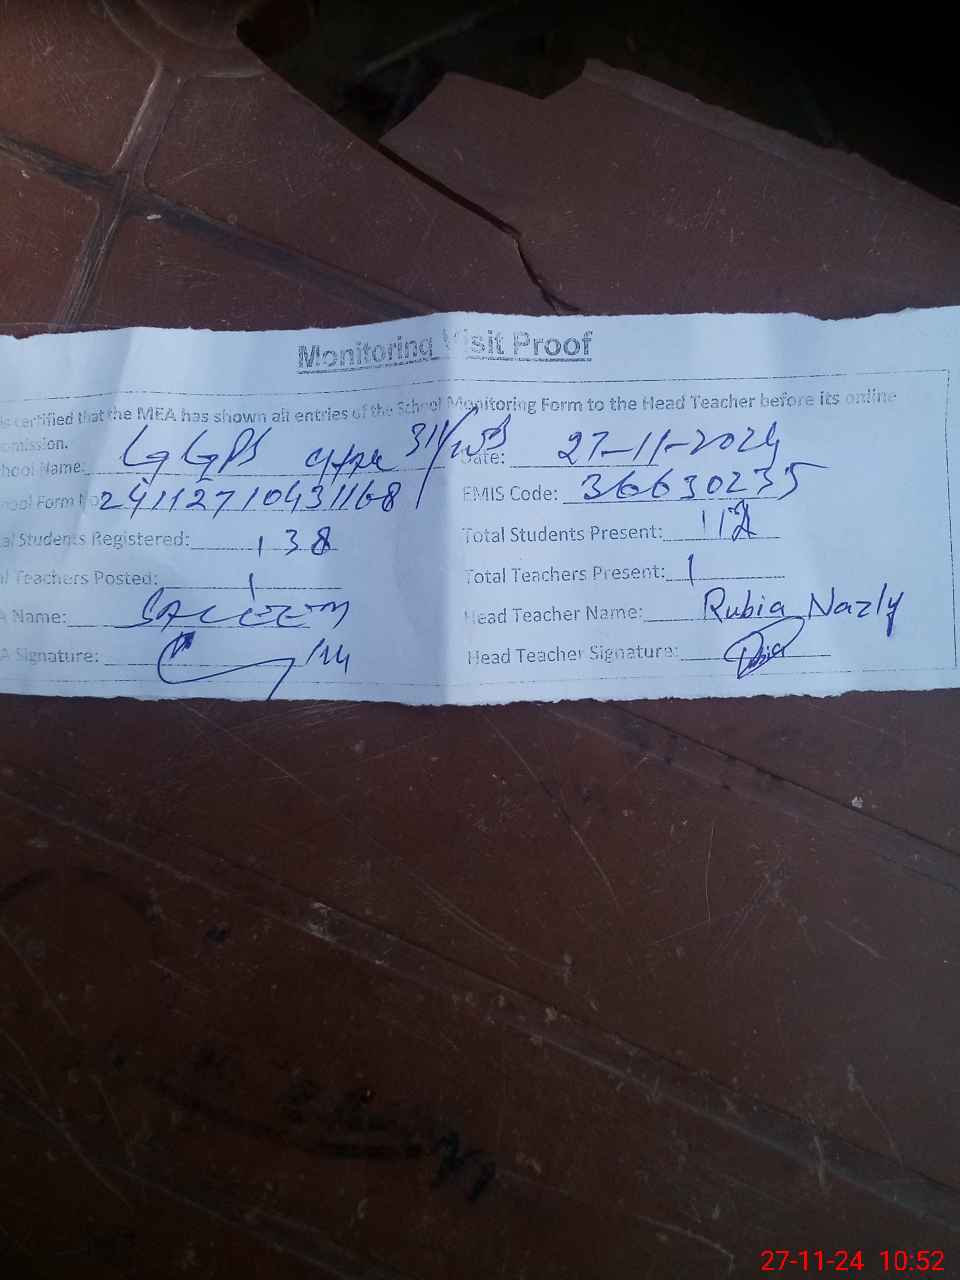 Monitoring Visit Proof
is certified that the MEA has shown all entries of the School Monitoring Form to the Head Teacher before its online
omission.
hool Name: GGPS 311/ Date: 27-11-2024
hool Form No 24112710431168 EMIS Code: 36630235
al Students Registered: 138 Total Students Present: 112
al Teachers Posted: 1 Total Teachers Present: 1
A Name: SALEEM Head Teacher Name: Rubia Nazly
A Signature: Head Teacher Signature:
27-11-24 10:52